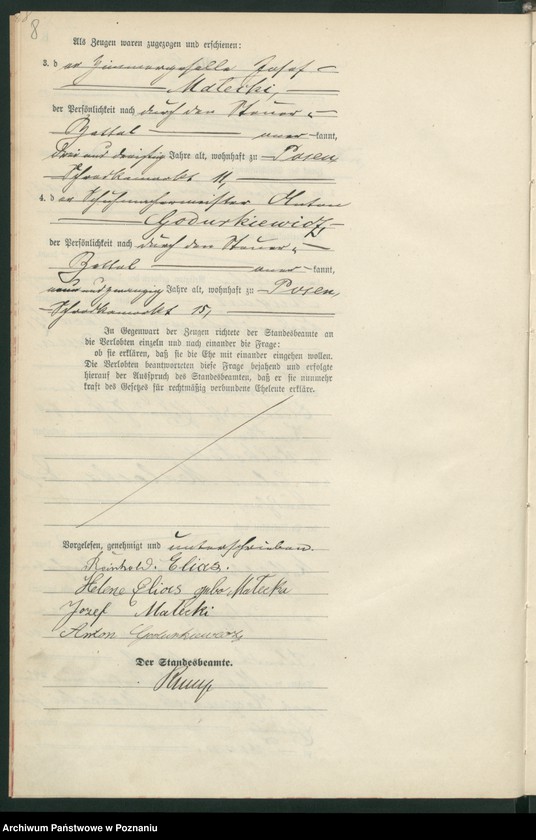 8
Als Zeugen waren zugezogen und erschienen:
3. der Zimmergeselle Josef
Małecki,
der Persönlichkeit nach durch den Steuer-
Zettel anerkannt,
drei und dreißig Jahre alt, wohnhaft zu Posen
Schrodkamarkt 11,
4. der Schuhmachermeister Anton
Godurkiewicz,
der Persönlichkeit nach durch den Steuer-
Zettel anerkannt,
neunundzwanzig Jahre alt, wohnhaft zu Posen,
Schrodkamarkt 15,
In Gegenwart der Zeugen richtete der Standesbeamte an
die Verlobten einzeln und nach einander die Frage:
ob sie erklären, daß sie die Ehe mit einander eingehen wollen.
Die Verlobten beantworteten diese Frage bejahend und erfolgte
hierauf der Ausspruch des Standesbeamten, daß er sie nunmehr
kraft des Gesetzes für rechtmäßig verbundene Eheleute erkläre.
Vorgelesen, genehmigt und unterschrieben.
Reinhold Elias.
Helene Elias geb. Małecka
Jozef Małecki
Anton Godurkiewicz
Der Standesbeamte.
Archiwum Państwowe w Poznaniu